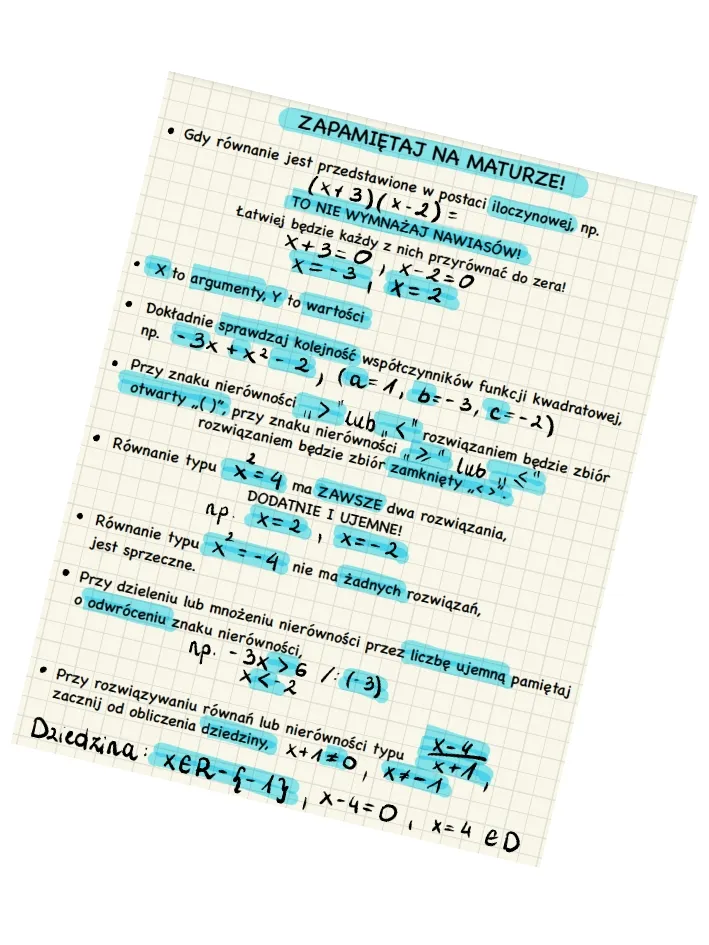 ZAPAMIĘTAJ NA MATURZE!
• Gdy równanie jest przedstawione w postaci iloczynowej, np.
(x+3)(x-2)=
TO NIE WYMNAŻAJ NAWIASÓW!
Łatwiej będzie każdy z nich przyrównać do zera!
x+3=0, x-2=0
x=-3, x=2
• X to argumenty, Y to wartości
• Dokładnie sprawdzaj kolejność współczynników funkcji kwadratowej,
np. -3x+x²-2, (a=1, b=-3, c=-2)
• Przy znaku nierówności „>" lub „<" rozwiązaniem będzie zbiór
otwarty „()", przy znaku nierówności „≥" lub „≤"
rozwiązaniem będzie zbiór zamknięty „<>".
• Równanie typu x²=4 ma ZAWSZE dwa rozwiązania,
DODATNIE I UJEMNE!
np. x=2, x=-2
• Równanie typu x²=-4 nie ma żadnych rozwiązań,
jest sprzeczne.
• Przy dzieleniu lub mnożeniu nierówności przez liczbę ujemną pamiętaj
o odwróceniu znaku nierówności,
np. -3x>6 /:(-3)
x<-2
• Przy rozwiązywaniu równań lub nierówności typu x-4/x+1,
zacznij od obliczenia dziedziny, x+1≠0, x≠-1
Dziedzina: x∈R-{-1}, x-4=0, x=4 ∈D